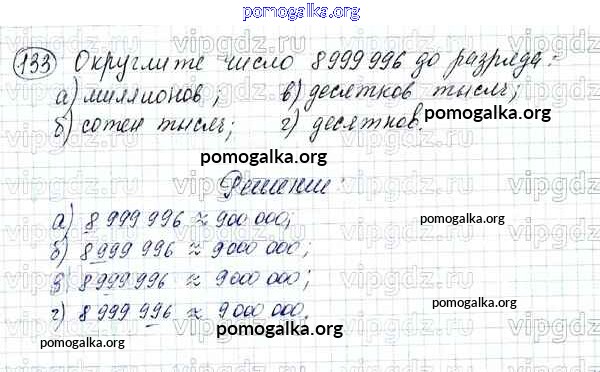 pomogalka.org
133 Округлите число 8 999 996 до разряда:
а) миллионов; в) десятков тысяч;
б) сотен тысяч; г) десятков.
pomogalka.org
Решение:
а) 8 999 996 ≈ 900 000;
pomogalka.org
б) 8 999 996 ≈ 9000 000;
pomogalka.org
в) 8 999 996 ≈ 9000 000;
г) 8 999 996 ≈ 9 000 000.
pomogalka.org
pomogalka.org
pomogalka.org
pomogalka.org